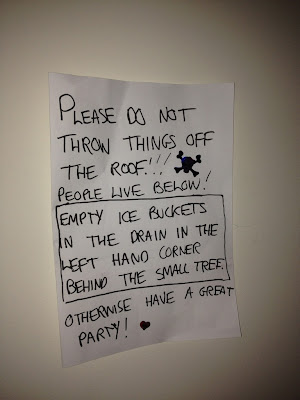 PLEASE DO NOT
THROW THINGS OFF
THE ROOF!!!
PEOPLE LIVE BELOW!
EMPTY ICE BUCKETS
IN THE DRAIN IN THE
LEFT HAND CORNER
BEHIND THE SMALL TREE.
OTHERWISE HAVE A GREAT
PARTY!